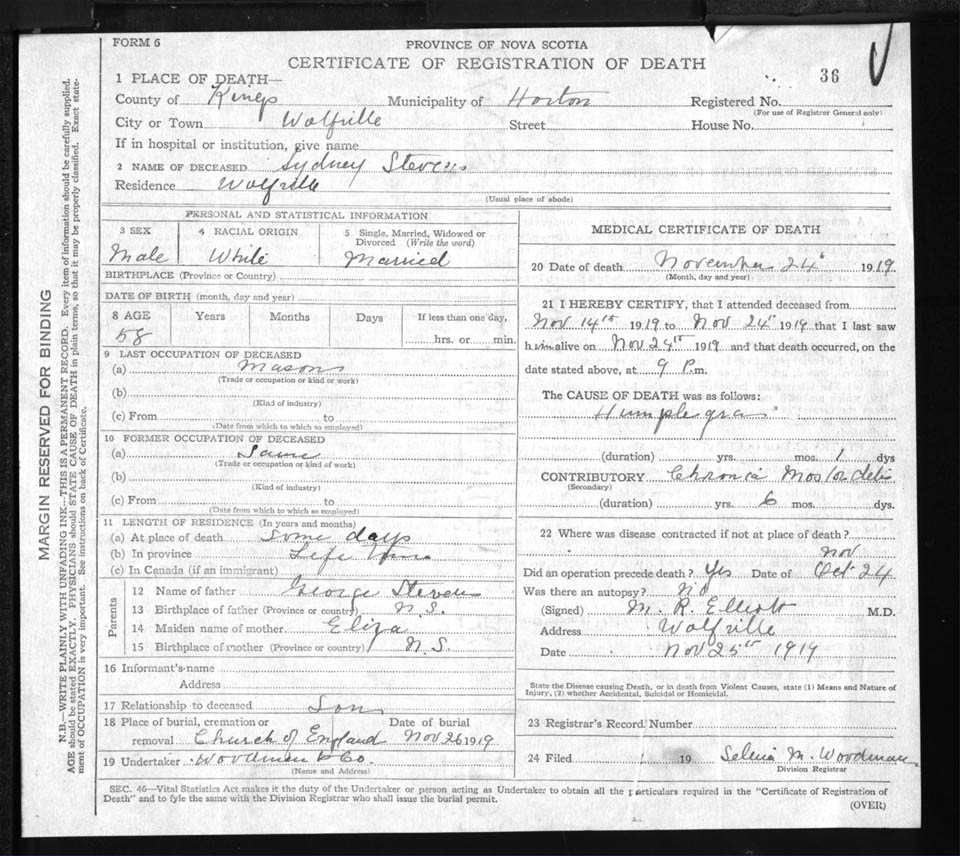 FORM 6
PROVINCE OF NOVA SCOTIA
CERTIFICATE OF REGISTRATION OF DEATH
36
1 PLACE OF DEATH—
County of Kings Municipality of Horton Registered No.
(For use of Registrar General only)
City or Town Wolfville Street House No.
If in hospital or institution, give name
2 NAME OF DECEASED Sydney Stevens
Residence Wolfville
(Usual place of abode)
MARGIN RESERVED FOR BINDING
N.B.—WRITE PLAINLY WITH UNFADING INK—THIS IS A PERMANENT RECORD. Every item of information should be carefully supplied.
AGE should be stated EXACTLY. PHYSICIANS should STATE CAUSE OF DEATH in plain terms, so that it may be properly classified. Exact state-
ment of OCCUPATION is very important. See instructions on back of Certificate.
PERSONAL AND STATISTICAL INFORMATION
3 SEX 4 RACIAL ORIGIN 5 Single, Married, Widowed or
Divorced (Write the word)
Male White Married
BIRTHPLACE (Province or Country)
DATE OF BIRTH (month, day and year)
8 AGE Years Months Days If less than one day,
58 hrs. or min.
9 LAST OCCUPATION OF DECEASED
(a) Mason
(Trade or occupation or kind or work)
(b)
(Kind of industry)
(c) From to
(Date from which to which so employed)
10 FORMER OCCUPATION OF DECEASED
(a) Same
(Trade or occupation or kind of work)
(b)
(Kind of industry)
(c) From to
(Date from which to which so employed)
11 LENGTH OF RESIDENCE (In years and months)
(a) At place of death Some days
(b) In province Life time
(c) In Canada (if an immigrant)
Parents
12 Name of father George Stevens
13 Birthplace of father (Province or country) N.S.
14 Maiden name of mother Eliza
15 Birthplace of mother (Province or country) N.S.
16 Informant's name
Address
17 Relationship to deceased Son
18 Place of burial, cremation or Date of burial
removal Church of England Nov 26 1919
19 Undertaker Woodman & Co.
(Name and Address)
MEDICAL CERTIFICATE OF DEATH
20 Date of death November 24 1919
(Month, day and year)
21 I HEREBY CERTIFY, that I attended deceased from
Nov 14th 1919 to Nov 24th 1919 that I last saw
him alive on Nov 24th 1919 and that death occurred, on the
date stated above, at 9 P.m.
The CAUSE OF DEATH was as follows:
(duration) yrs. mos. 1 dys
CONTRIBUTORY Chronic
(Secondary)
(duration) yrs. 6 mos. dys.
22 Where was disease contracted if not at place of death?
Nov
Did an operation precede death? Yes Date of Oct 24
Was there an autopsy? No
(Signed) M. R. Elliott M.D.
Address Wolfville
Date Nov 25th 1919
State the Disease causing Death, or in death from Violent Causes, state (1) Means and Nature of
Injury, (2) whether Accidental, Suicidal or Homicidal.
23 Registrar's Record Number
24 Filed 19 M. Woodman
Division Registrar
SEC. 46—Vital Statistics Act makes it the duty of the Undertaker or person acting as Undertaker to obtain all the particulars required in the "Certificate of Registration of
Death" and to fyle the same with the Division Registrar who shall issue the burial permit.
(OVER)